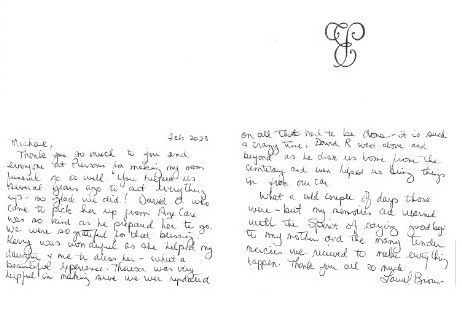 Feb 2023
Michael,
Thank you so much to you and
everyone at Piersons for making my moms
funeral go so well. You helped us
several years ago to set everything
up - so glad we did! David G who
came to pick her up from Age Care
was so kind as he prepared her to go.
We were so grateful for that blessing
Kerry was wonderful as she helped my
daughter & me to dress her - what a
beautiful experience. Theresa was very
helpful in making sure we were updated
on all that had to be done - it is such
a crazy time. David R went above and
beyond as he drove us home from the
cemetary and even helped us bring things
in from our car.
What a cold couple of days those
were - but my memories are warmed
with the Spirit of saying goodbye
to my mother and the many tender
mercies we received to make everything
happen. Thank you all so much.
Brown